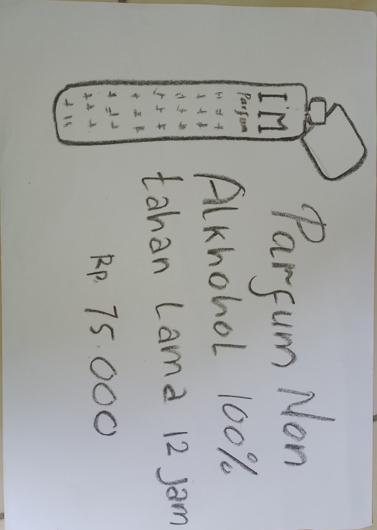 I'M
Parfum
Parfum Non
Alkhohol 100%
tahan Lama 12 jam
Rp. 75.000